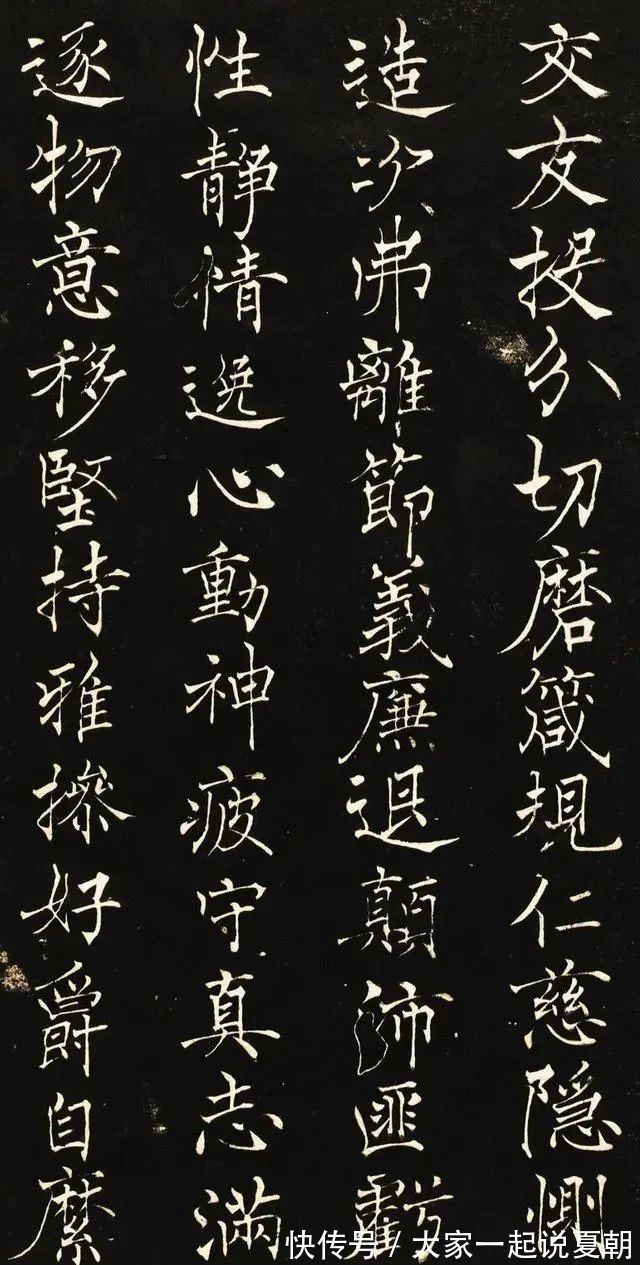 交友投分切磨箴規仁慈隱惻
造次弗離節義廉退顛沛匪虧
性靜情逸心動神疲守真志滿
逐物意移堅持雅操好爵自縻
快传号/大家一起说夏朝